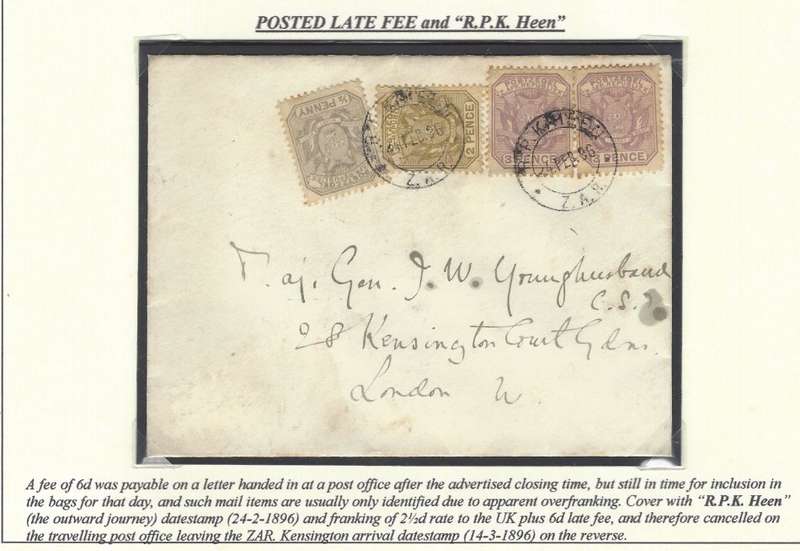 POSTED LATE FEE and “R.P.K. Heen”
½ PENNY
2 PENCE
3 PENCE
PENCE
24 FEB 96
Z.A.R.
R.P.K.
24 FEB 96
Z.A.R.
Maj. Gen. J. W. Younghusband
C.S.I.
28 Kensington Court Gdns.
London W.
A fee of 6d was payable on a letter handed in at a post office after the advertised closing time, but still in time for inclusion in
the bags for that day, and such mail items are usually only identified due to apparent overfranking. Cover with “R.P.K. Heen”
(the outward journey) datestamp (24-2-1896) and franking of 2½d rate to the UK plus 6d late fee, and therefore cancelled on
the travelling post office leaving the ZAR. Kensington arrival datestamp (14-3-1896) on the reverse.